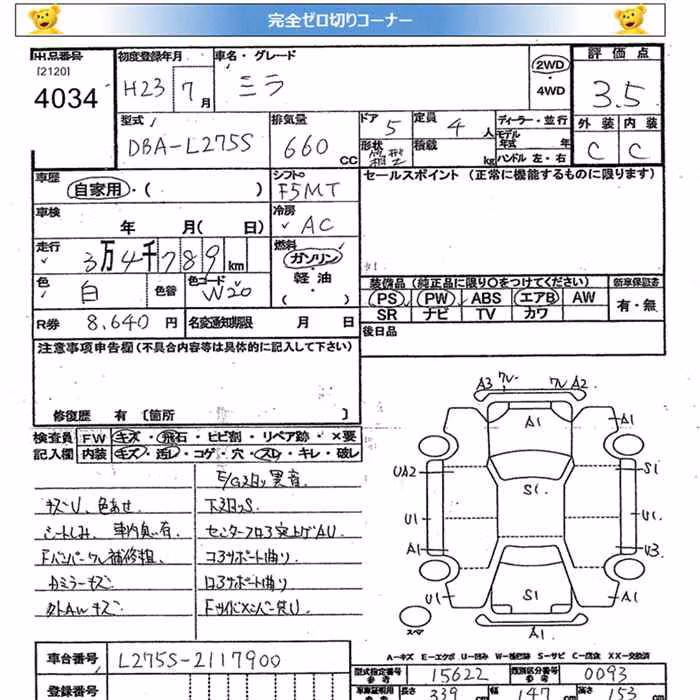 完全ゼロ切りコーナー
出品番号
[2120]
4034
初度登録年月
H23 7月
車名・グレード
ミラ
2WD
・
4WD
評価点
3.5
外装 内装
C C
型式
DBA-L275S
排気量
660 CC
ドア 5
定員 4 人
形状
積載 kg
ディーラー・並行
モデル年式 年
ハンドル 左・右
車歴
自家用・( )
シフト
F5MT
セールスポイント (正常に機能するものに限ります)
車検
年 月( 日)
冷房
AC
走行
3万4千789km
燃料
ガソリン
軽油
( )
色
白
色替
色コード
W20
装備品 (純正品に限り〇をつけてください)
PS PW ABS エアB AW
SR ナビ TV カワ
新車保証書
有・無
R券 8,640 円
名変通知期限 月 日
後日品
注意事項申告欄 (不具合内容等は具体的に記入して下さい)
修復歴 有 [箇所 ]
検査員記入欄
FW キズ・飛石・ヒビ割・リペア跡・×要
内装 キズ・汚レ・コゲ・穴・スレ・キレ・破レ
キズU、色あせ
シートしみ、車内臭い有
Fバンパークル補修粗、
カミラーキズ
外AWキズ
下スロッS
センターフロア突上げAU
コアサポート曲り
A3 ワレ ワレ A2
A1
A1 A1
UA2 S1
S1
U1 U1
A1 U3
U1 S1 U1
スペア
A1
A-キズ E-エクボ U-凹み W-補修跡 S-サビ C-腐食 XX-交換済
車台番号 L275S-2117900
登録番号
型式指定番号 参考 15622
類別区分番号 参考 0093
車庫証明用 参考
長さ 339 cm 幅 147 cm 高さ 153 cm